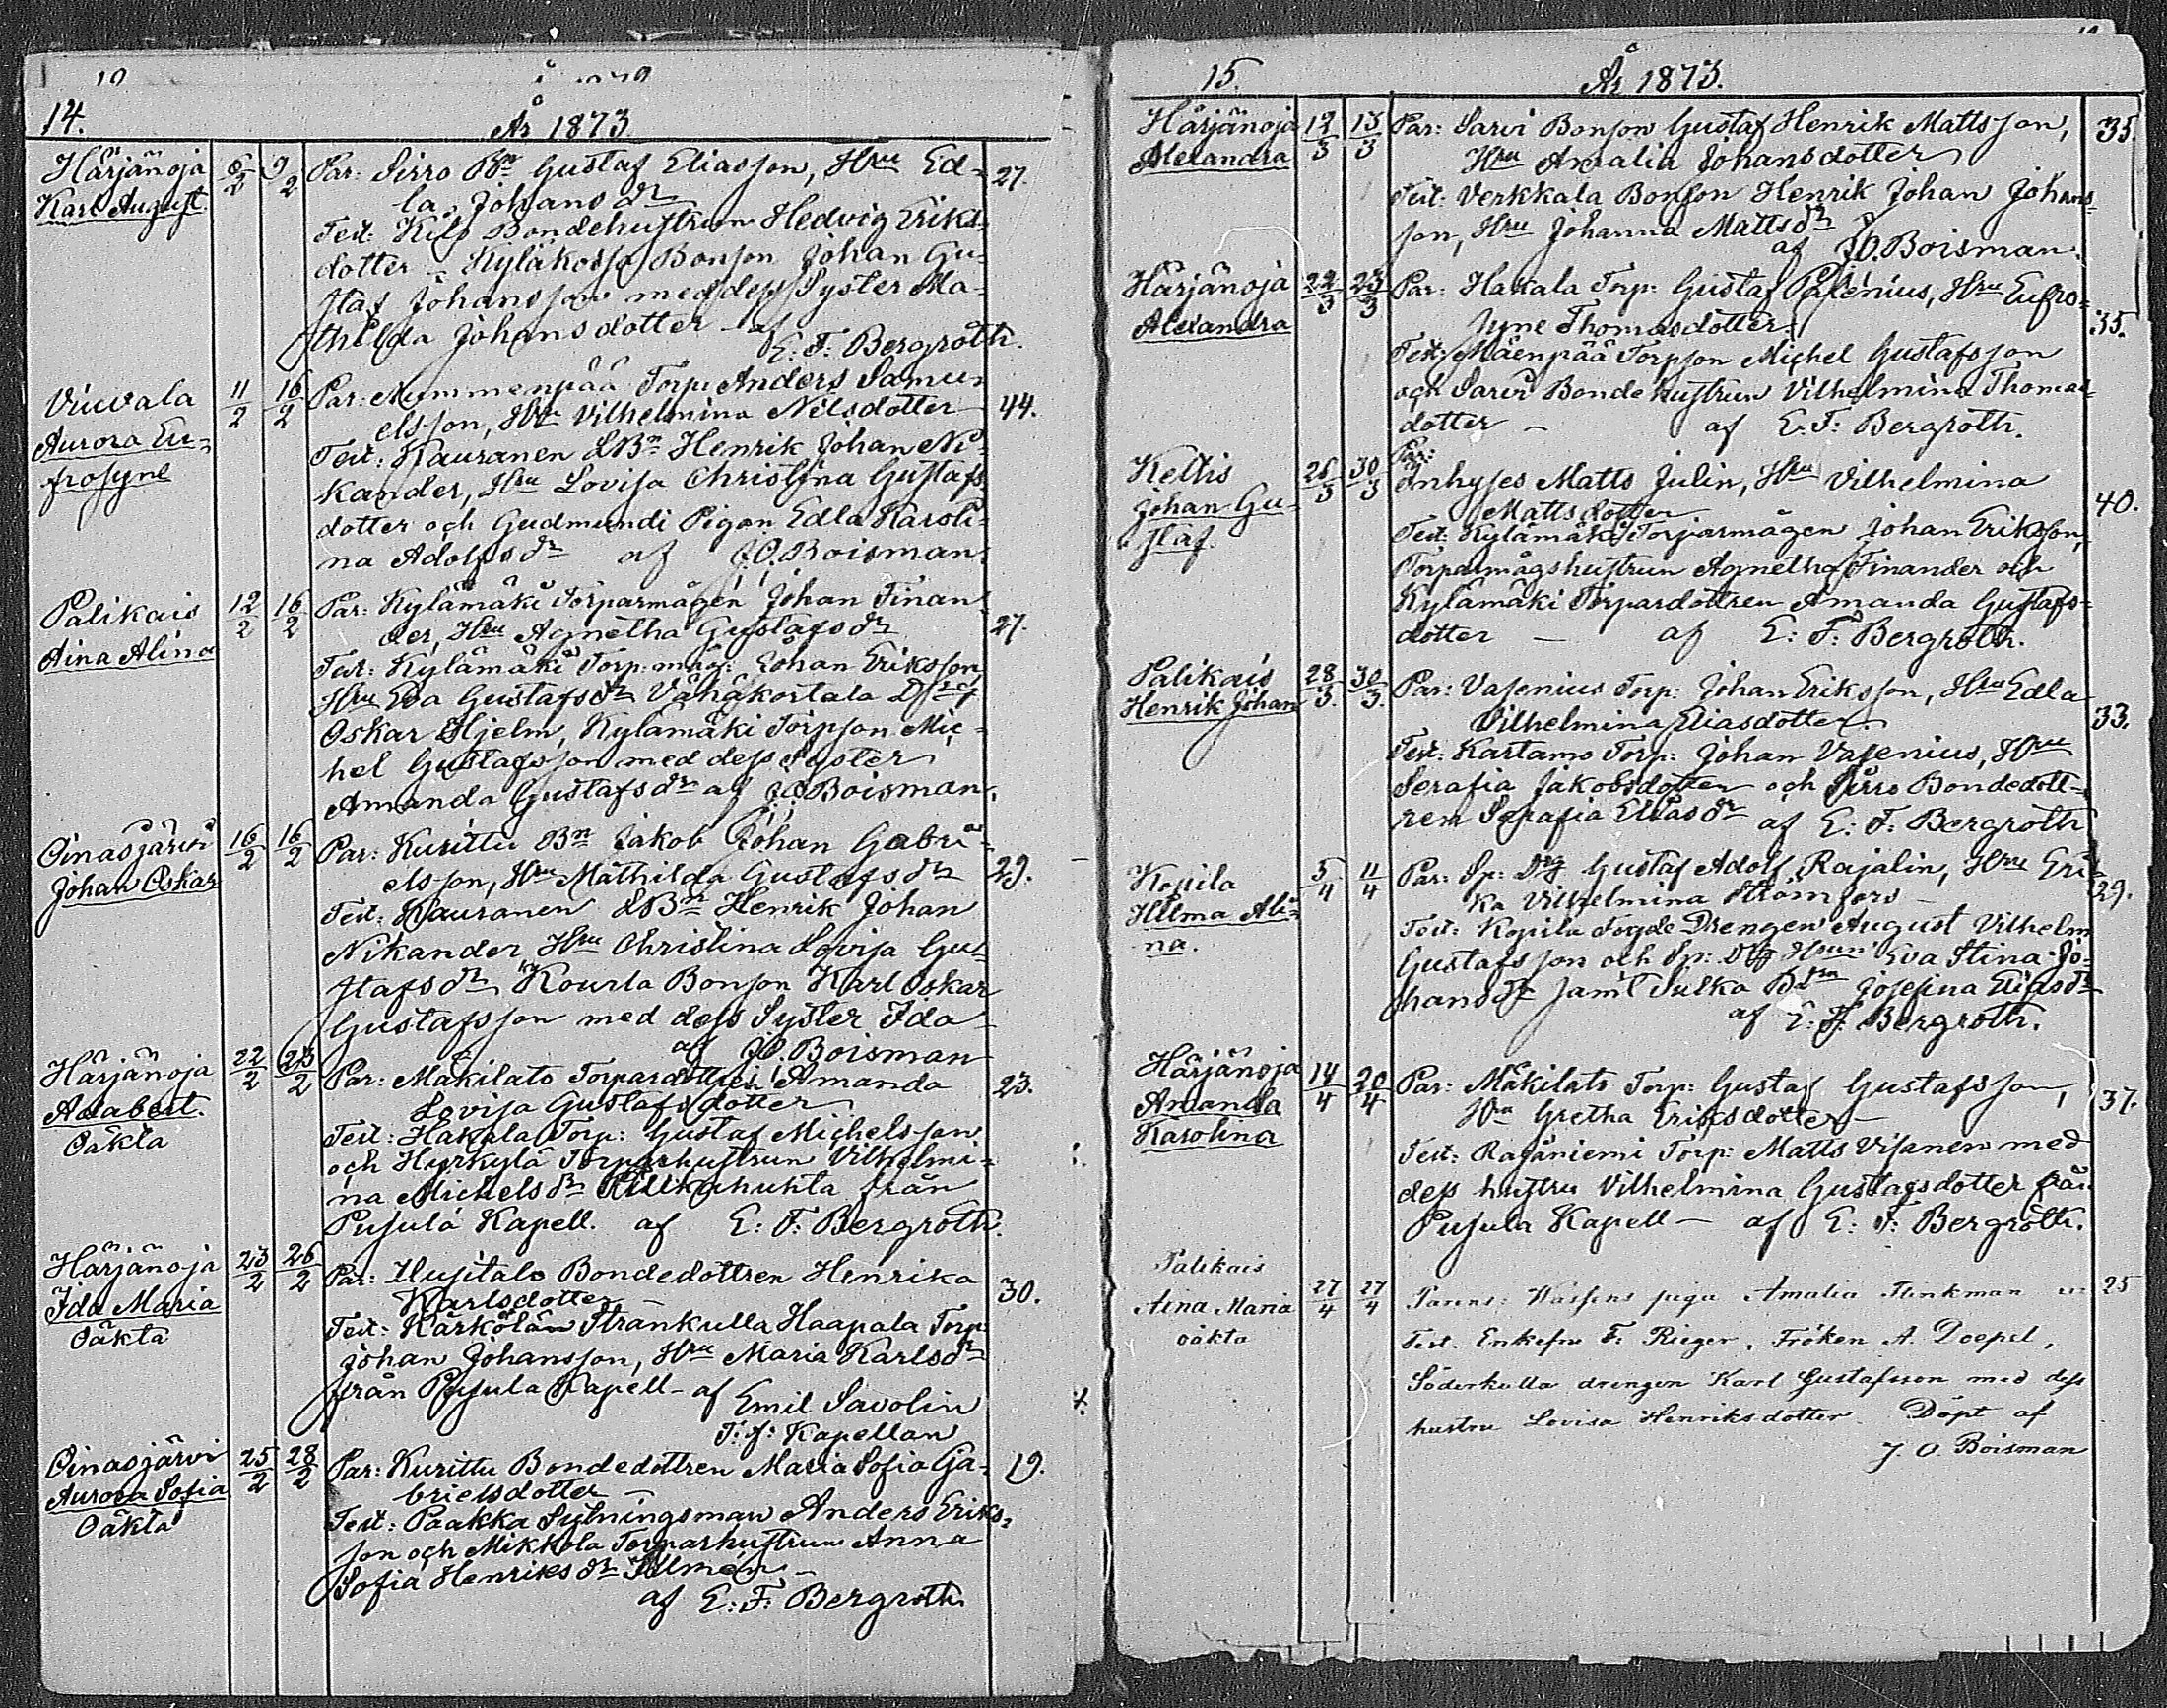 14.
År 1873
Härjänoja 6/2 9/2 Par: Sirro Bn Gustaf Eliasson, Hru Ed- 27.
Karl August. la Johansdr
Test: Kilo Bondehustrun Hedvig Eriks-
dotter – Kyläkorpi Bonson Johan Gu-
staf Johansson med dess Syster Ma-
thilda Johansdotter – af
E: F: Bergroth.
Viuvala 11/2 16/2 Par: Nummenpää Torp: Anders Samu- 44.
Aurora Eu- elsson, Hru Vilhelmina Nilsdotter
frosyne Test: Kauranen LBn Henrik Johan Ni-
kander, Hru Lovisa Christina Gustafs-
dotter och Gudmundi Pigan Edla Karoli-
na Adolfsdr af J.O. Boisman.
Palikais 12/2 16/2 Par: Kylämäki Torparmågen Johan Finan- 27.
Aina Alina der, Hru Agnetha Gustafsdr
Test: Kylämäki Torp: måg: Johan Eriksson,
Hru Eva Gustafsdr Vähäkortala Drg
Oskar Hjelm, Kylämäki Torpson Mic-
hel Gustafsson med dess syster
Amanda Gustafsdr af J.O. Boisman.
Oinasjärvi 16/2 16/2 Par: Kurittu Bn Jakob Johan Gabri- 29.
Johan Oskar elsson, Hru Mathilda Gustafsdr
Test: Kauranen LBn Henrik Johan
Nikander, Hru Christina Lovisa Gu-
stafsdr, Kourla Bonson Karl Oskar
Gustafsson med dess Syster Ida
af J.O. Boisman
Härjänoja 22/2 23/2 Par: Mäkilato Torpardottren Amanda 23.
Adabert. Lovisa Gustafsdotter
Oäkta Test: Hakala Torp: Gustaf Michelsson
och Hyrkylä Torparhustrun Vilhelmi-
na Michelsdr från
Pusula Kapell. af E: F: Bergroth.
Härjänoja 23/2 26/2 Par: Uusitalo Bondedottren Henrika 30.
Ida Maria Karlsdotter –
Oäkta Test: Kärkölän Strankulla Haapala Torp:
Johan Johansson, Hru Maria Karlsdr
från Pusula Kapell – af Emil Savolin
T: f: Kapellan
Oinasjärvi 25/2 28/2 Par: Kurittu Bondedottren Maria Sofia Ga- 19.
Aurora Sofia brielsdotter –
Oäkta Test: Paakka Sytningsman Anders Eriks-
son och Mikkola Torparhustrun Anna
Sofia Henriksdr –
af E: F: Bergroth
15.
År 1873.
Härjänoja 12/3 13/3 Par: Sarvi Bonson Gustaf Henrik Mattsson, 35.
Alexandra Hru Amalia Johansdotter
Test: Verkkala Bonson Henrik Johan Johans-
son, Hru Johanna Mattsdr
af J.O. Boisman.
Härjänoja 22/3 23/3 Par: Hakala Torp: Gustaf Palenius, Hru Eufro-
Alexandra syne Thomasdotter. 35.
Test: Mäenpää Torpson Michel Gustafsson
och Sarvi Bonde hustrun Vilhelmina Thomas-
dotter – af E: F: Bergroth.
Par:
Keltis 26/3 30/3 Inhyses Matts Julin, Hru Vilhelmina
Johan Gu- Mattsdotter 40.
staf. Test: Kylämäki Torparmågen Johan Eriksson,
Torparmågshustrun Agnetha Finander och
Kylämäki Torpardottren Amanda Gustafs-
dotter – af E: F: Bergroth.
Palikais 28/3 30/3 Par: Vasenius Torp: Johan Eriksson, Hru Edla
Henrik Johan Vilhelmina Eliasdotter. 33.
Test: Kartamo Torp: Johan Vasenius, Hru
Serafia Jakobsdotter och Sirro Bondedott-
ren Serafia Eliasdr af E: F: Bergroth
Kopila 5/4 11/4 Par: Sp: Drg Gustaf Adolf Rajalin, Hru Eri-
Hilma Ali- ka Vilhelmina Strömfors – 29.
na. Test: Kopila Fogde Drengen August Vilhelm
Gustafsson och Sp: Drg Hrun Eva Stina Jo-
hansdr samt Sulka Josefina Eliasdr
af E: F: Bergroth.
Härjänoja 14/4 20/4 Par: Mäkilato Torp: Gustaf Gustafsson, 37.
Amanda Hru Gretha Eriksdotter –
Karolina Test: Rajäniemi Torp: Matts Visanen med
dess hustru Vilhelmina Gustafsdotter från
Pusula Kapell – af E: F: Bergroth.
Palikais
Aina Maria 27/4 27/4 Parens: piga Amalia Flinkman 25
oäkta Test. Enkefru F: Rieger, Fröken A. Doepel,
Söderkulla drengen Karl Gustafsson med dess
hustru Lovisa Henriksdotter. Döpt af
J. O. Boisman